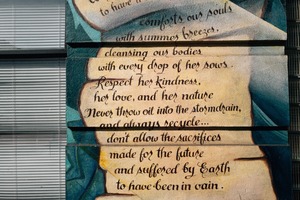 to have
comforts our souls
with summer breezes,
cleansing our bodies
with every drop of her sows
Respect her kindness,
her love, and her nature
Never throw oil into the stormdrain,
and always recycle...
don't allow the sacrifices
made for the future
and suffered by Earth
to have been in vain.